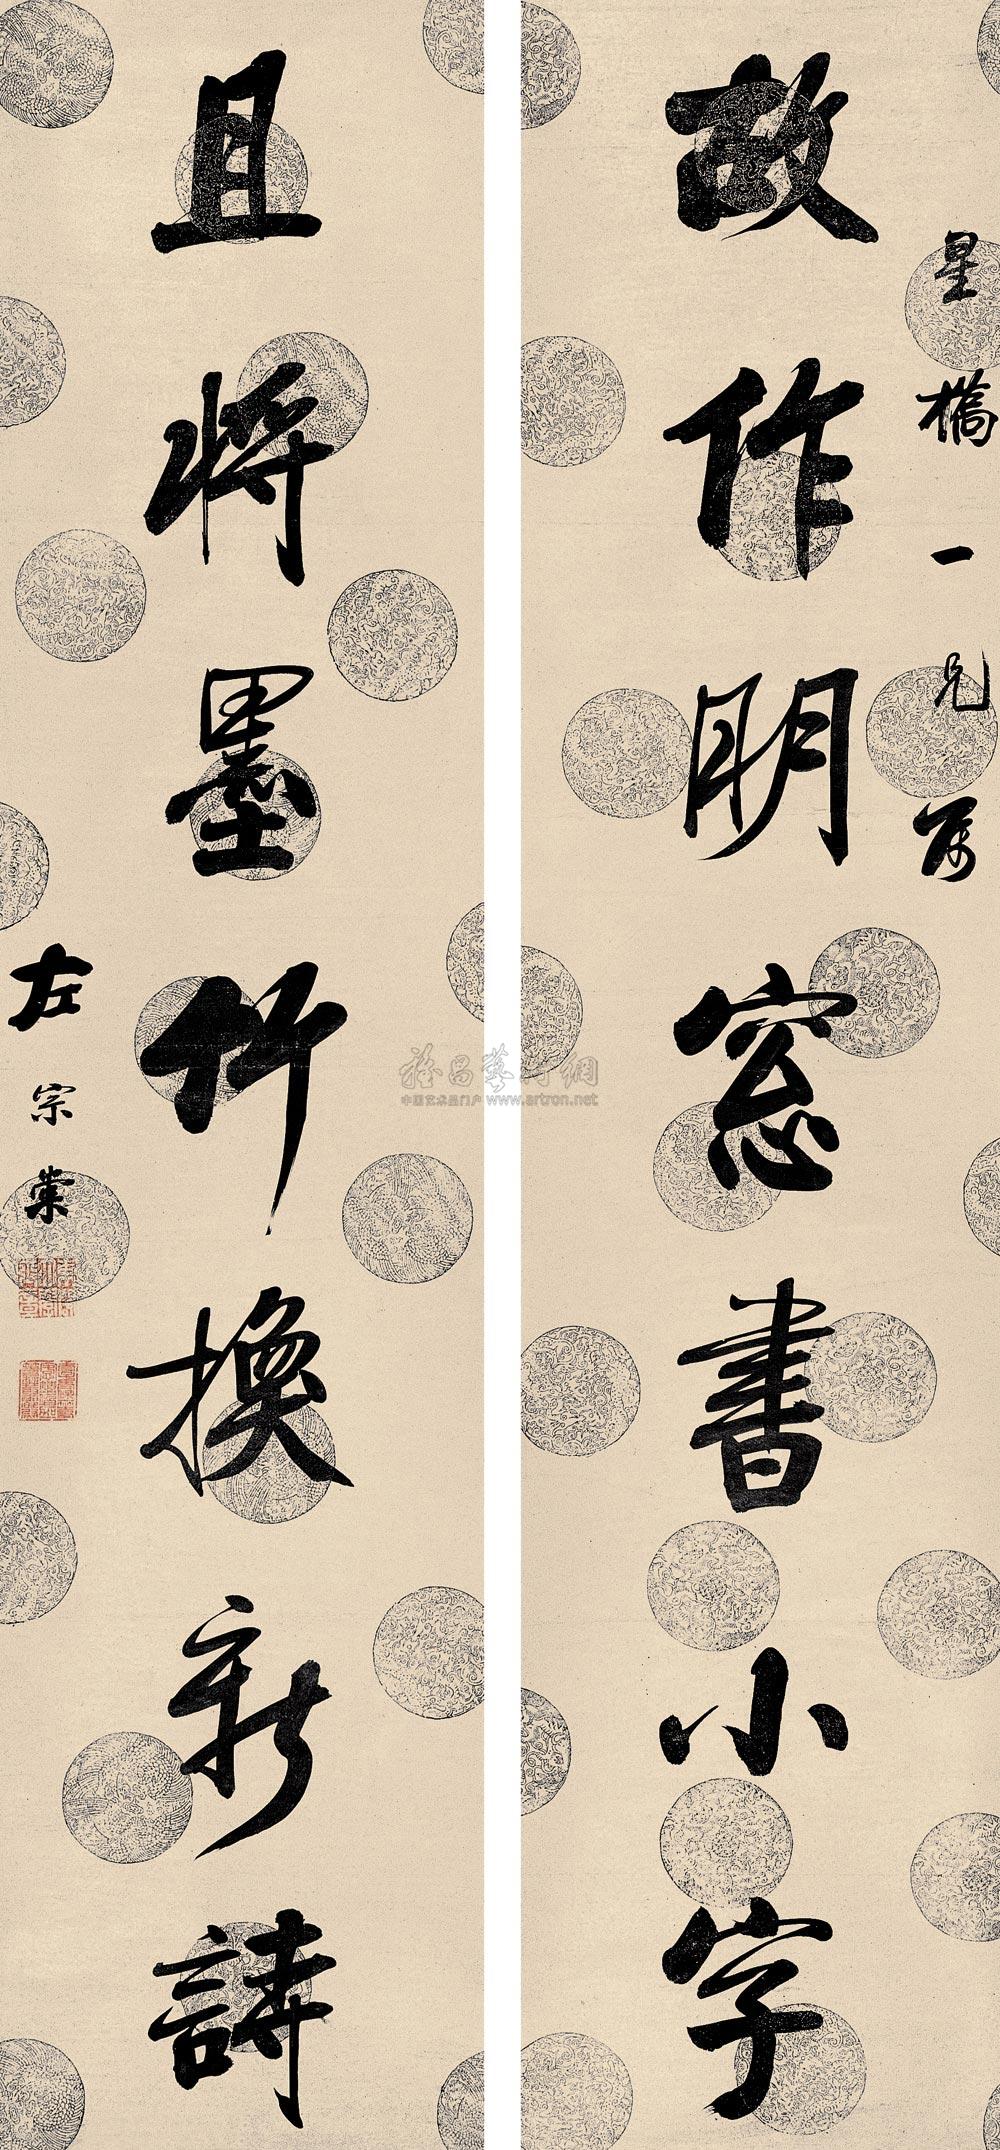 故作明窓書小字
星橋一兄屬
且將墨竹換新詩
左宗棠
雅昌藝術網
中国艺术品门户 www.artron.net